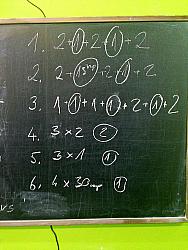 1. 2+1+2+1+2
2. 2+1+2+1+2
3. 1+1+1+1+2+1+2
4. 3×2 2
5. 3×1 1
6. 4×30 1